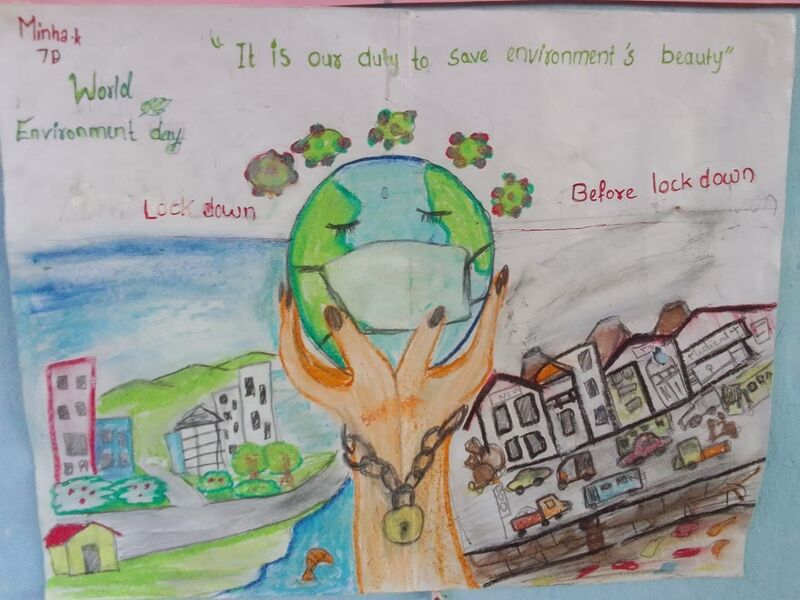 Minha.k
7D
"It is our duty to save environment's beauty"
World
Environment day
Lock down
Before lock down
Medical +